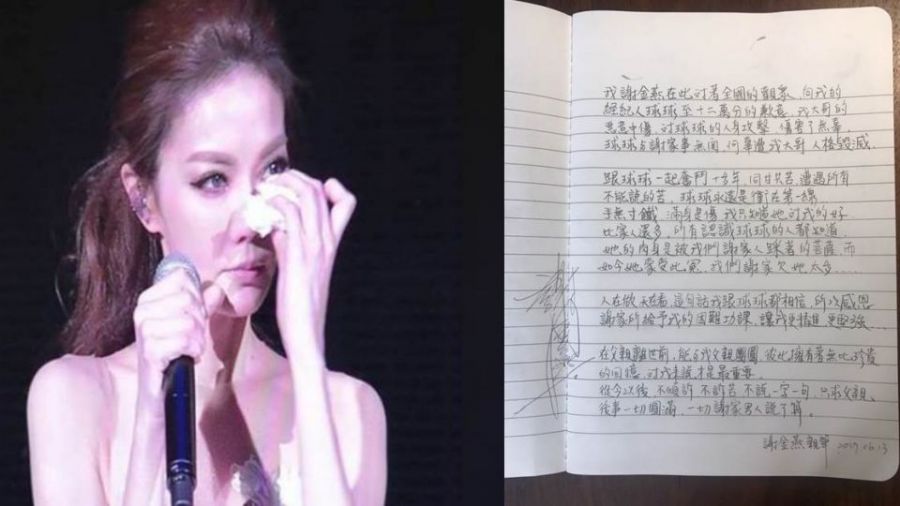 我謝金燕在此對著全國的觀眾、向我的
經紀人球球至十二萬分的歉意,我大哥的
惡意中傷,對球球的人身攻擊,傷害了無辜,
球球與謝家事無關,何辜遭我大哥人格毀滅.
跟球球一起奮鬥十多年,同甘共苦,遭遇所有
不能說的苦,球球永遠是衝在第一線,
手無寸鐵,滿身是傷,我只嘆她對我的好
比家人還多,所有認識球球的人都知道,
她的肉身是被我們謝家人踩著的菩薩,而
如今她蒙受此冤,我們謝家欠她太多.....
人在做天在看,這句話我跟球球都相信,所以感恩
謝家所給予我的困難功課,讓我更精進,更堅強....
在父親離世前,能與我父親團圓,彼此擁有著無比珍貴
的回憶,對我來說才是最重要.
從今以後,不嗔訴、不訴苦、不說一字一句,只求父親
後事一切圓滿,一切謝家男人說了算。
謝金燕親筆 2017.06.13